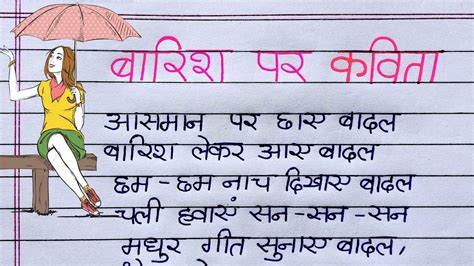 बारिश पर कविता
आसमान पर छाए बादल
बारिश लेकर आए बादल
छम-छम नाच दिखाए बादल
चली हवाएं सन-सन-सन
मधुर गीत सुनाए बादल,